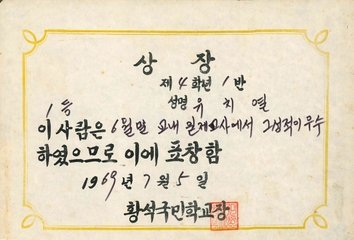 상장
제 4 학년 1 반
성명 유 치 열
1 등
이 사람은 6월말 교내 고사에서 그성적이 우수
하였으므로 이에 표창함
1969년 7월 5일
황석국민학교장